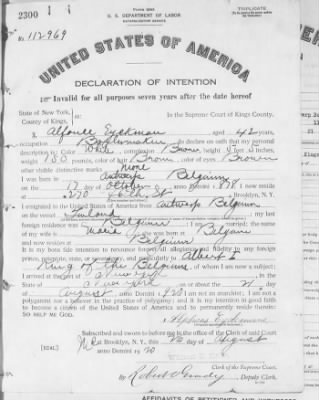 2300
FORM 2203
TRIPLICATE
U. S. DEPARTMENT OF LABOR
NATURALIZATION SERVICE
No. 112969
UNITED STATES OF AMERICA
DECLARATION OF INTENTION
Invalid for all purposes seven years after the date hereof
State of New York,
County of Kings,
In the Supreme Court of Kings County.
I, Alfonce Eyckman, aged 42 years,
occupation, do declare on oath that my personal
description is: Color White, complexion, height 5 feet inches,
weight 150 pounds, color of hair Brown, color of eyes Brown
other visible distinctive marks None
I was born in Antwerp Belgium
on the 17 day of October, anno Domini 1878; I now reside
at 270, Brooklyn, N. Y.
I emigrated to the United States of America from Antwerp Belgium
on the vessel Finland; my last
foreign residence was Belgium; I am married; the name
of my wife is Maria; she was born at Belgium
and now resides at Belgium
It is my bona fide intention to renounce forever all allegiance and fidelity to any foreign
prince, potentate, state, or sovereignty, and particularly to Albert I
King of the Belgians, of whom I am now a subject;
I arrived at the port of New York, in the
State of New York, on or about the 2 day
of August, anno Domini 1920; I am not an anarchist; I am not a
polygamist nor a believer in the practice of polygamy; and it is my intention in good faith
to become a citizen of the United States of America and to permanently reside therein:
SO HELP ME GOD.
Subscribed and sworn to before me in the office of the Clerk of said Court
[SEAL] at Brooklyn, N. Y., this day of August
anno Domini 1920
Clerk of the Supreme Court.
By Robert, Deputy Clerk.
AFFIDAVITS OF PETITIONER AND WITNESSES